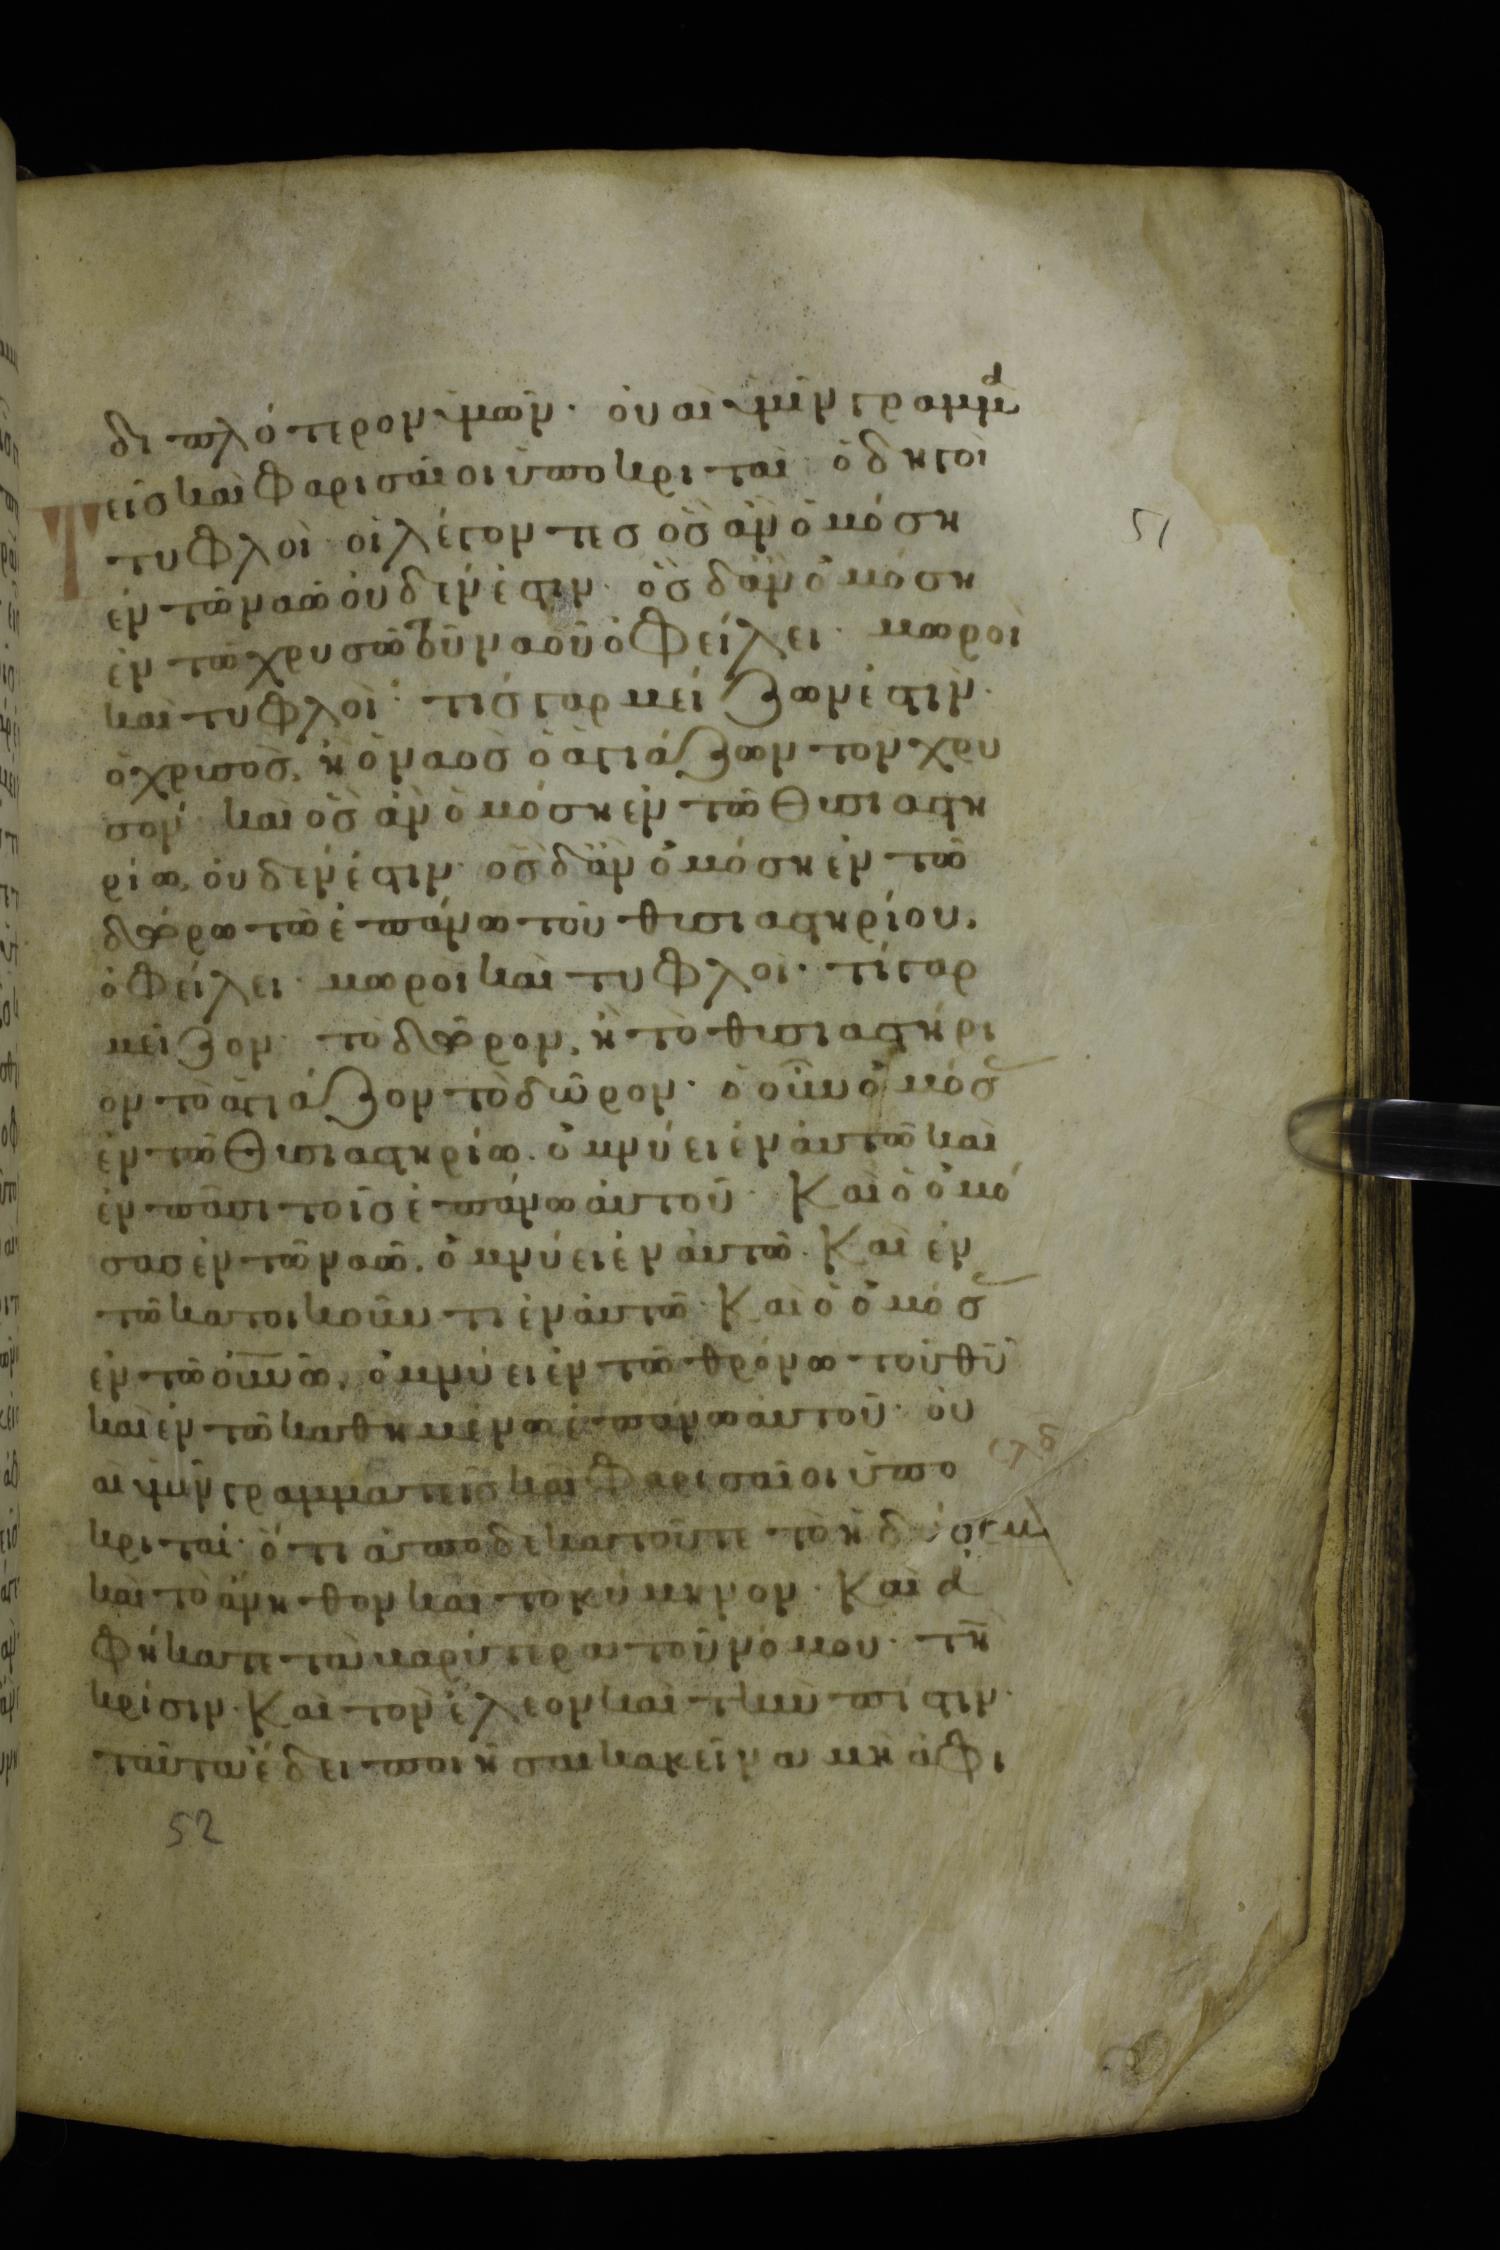 διπλότερον ὑμῶν· οὐαὶ ὑμῖν γραμμα
τεῖς καὶ Φαρισαῖοι ὑποκριταὶ· ὁδηγοὶ
τυφλοὶ· οἱ λέγοντες ὃς ἂν ὀμόση
ἐν τῶ ναῶ οὐδέν ἐστιν· ὃς δἂν ὀμόση
ἐν τῶ χρυσῶ τοῦ ναοῦ ὀφείλει· μωροὶ
καὶ τυφλοὶ· τίς γαρ μείζων ἐστὶν·
ὁ χρυσὸς, ἢ ὁ ναὸς ὁ ἁγιάζων τὸν χρυ
σόν· καὶ ὃς ἂν ὀμόση ἐν τῶ θυσιαστη
ρίω, οὐδέν ἐστιν· ὃς δἂν ὀμόση ἐν τῶ
δώρω τῶ ἐπάνω τοῦ θυσιαστηρίου,
ὀφείλει· μωροὶ καὶ τυφλοὶ· τί γαρ
μεῖζον· τὸ δῶρον, ἢ τὸ θυσιαστήρι
ον τὸ ἁγιάζον τὸ δῶρον· ὁ οὖν ὀμόσας
ἐν τῶ θυσιαστηρίω· ὀμνύει ἐν αὐτῶ καὶ
ἐν πᾶσι τοῖς ἐπάνω αὐτοῦ· Καὶ ὁ ὀμό
σας ἐν τῶ ναῶ, ὀμνύει ἐν αὐτῶ· Καὶ ἐν
τῶ κατοικοῦντι ἐν αὐτῶ· Καὶ ὁ ὀμόσας
ἐν τῶ οὐνῶ, ὀμνύει ἐν τῶ θρόνω τοῦ θῦ
καὶ ἐν τῶ καθημένω ἐπάνω αὐτοῦ· οὐ
αὶ ὑμῖν γραμματεῖς καὶ Φαρισαῖοι ὑπο
κριταί· ὅτι ἀποδεκατοῦτε τὸ ἡδύοσμον
καὶ τὸ ἄνηθον καὶ τὸ κύμηνον· Καὶ ἀ
φήκατε τὰ βαρύτερα τοῦ νόμου· τὴν
κρίσιν· Καὶ τὸν ἔλεον καὶ τὴν πίστιν·
ταῦτα ἔδει ποιῆσαι κακεῖνα μὴ ἀφι
51
52